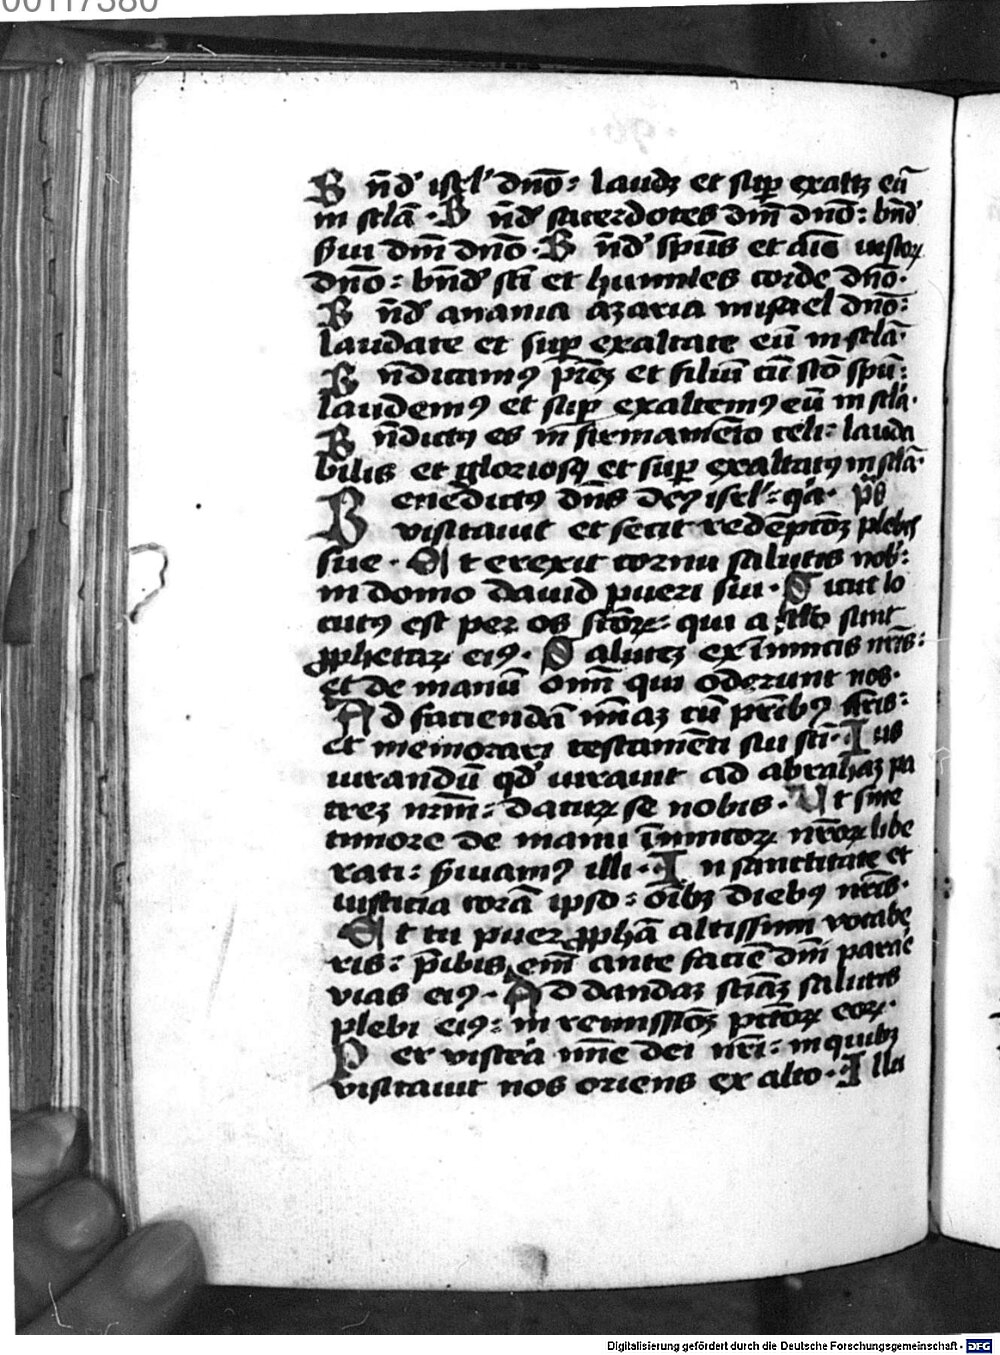 00117380
B n̄d' isrl' dn̄o: laudꝫ et suꝑ exaltꝫ eū
in sc̄lā · B n̄d' sacerdotes dn̄i dn̄o: bn̄d'
ẜui dn̄i dn̄o · B n̄d' spūs et aīe iustoꝝ
dn̄o: bn̄d' sc̄i et humiles corde dn̄o·
B n̄d' anania azaria misael dn̄o:
laudate et suꝑ exaltate eū in sc̄lā·
B n̄dicamꝰ pr̄eꝫ et filiū cū sc̄o spū:
laudemꝰ et suꝑ exaltemꝰ eū in sc̄lā·
B n̄dictꝰ es in firmamēto celi: lauda
bilis et gloriosꝰ et suꝑ exaltatꝰ in sc̄lā·
B enedictꝰ dn̄s deꝰ isrl': q'a·
visitauit et fecit redēptōꝫ plebis
sue · E t erexit cornu salutis nob':
in domo dauid pueri sui · S icut lo
cutꝰ est per os sc̄toꝝ: qui a sunt
ꝓphetaꝝ eiꝰ · S aluteꝫ ex inimicis nr̄is:
et de manū oīm qui oderunt nos·
A d faciendā mīaꝫ cū pr̄ibꝰ nr̄is:
et memorari testamēti sui sc̄i · I us
iurandū qd' iurauit ad abrahaꝫ pa
treꝫ nr̄m: daturꝝ se nobis · U t sine
timore de manu inimicoꝝ nr̄oꝝ libe
rati: ẜuiamꝰ illi · I n sanctitate et
iusticia corā ipso: oībꝫ diebꝰ nr̄is·
E t tu puer ꝓphā altissimi vocabe
ris: p̄ibis em̄ ante faciē dn̄i parare
vias eiꝰ · A d dandaꝫ sciāꝫ salutis
plebi eiꝰ: in remissiōꝫ pcc̄oꝝ eoꝝ·
P er viscera mīe dei nr̄i: in quibꝫ
visitauit nos oriens ex alto · I lla
Digitalisierung gefördert durch die Deutsche Forschungsgemeinschaft - DFG